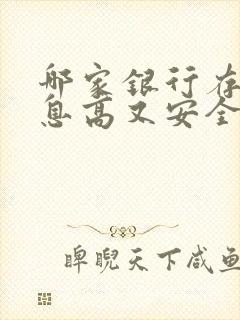 哪家银行存
息高又安全
睥睨天下咸鱼